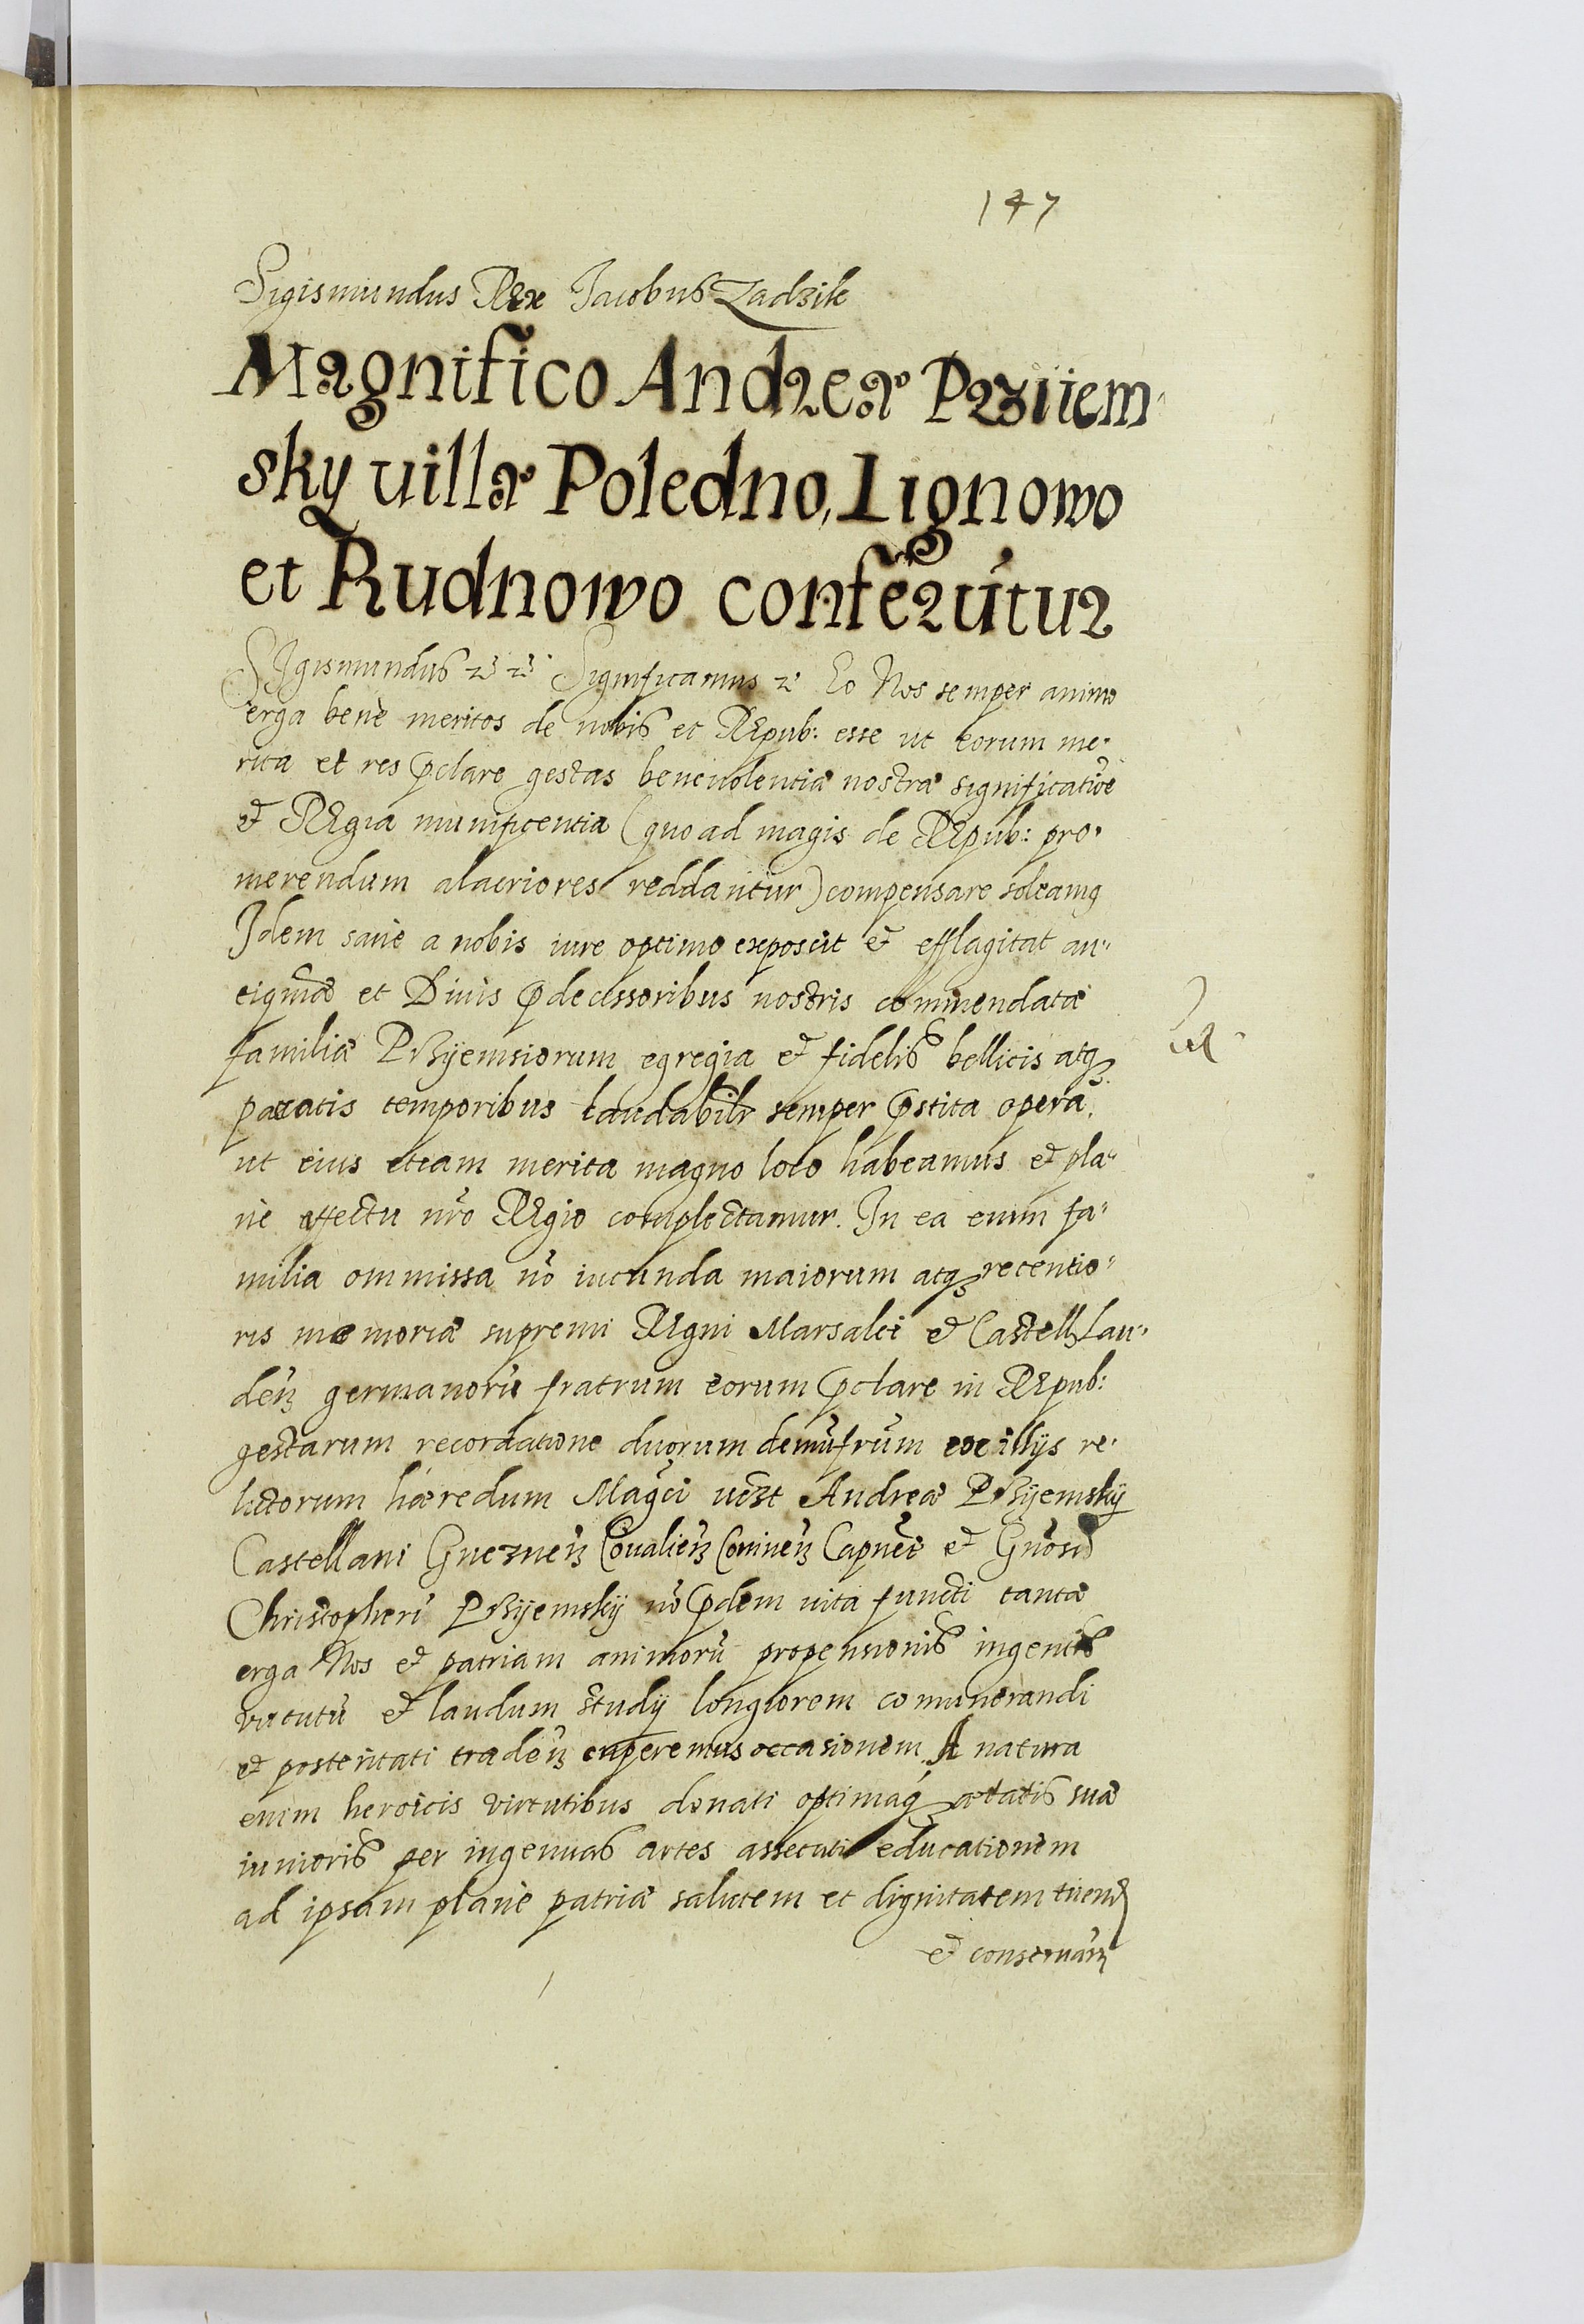 147
Sigismundus REx Jacobus Zadzik
Magnifico Andreæ Przÿem-
sky villæ Poledno, Lignowo
et Rudnowo conferũtur
SIgismundus Significamus Eo Nos semper animo
erga benè meritos de nobis et REpub: esse ut eorum me-
rita et res p̃clare gestas beneuolentiæ nostræ significatiõe
et REgia munificentia (quo ad magis de REpub: pro-
merendum alacriores reddantur) compensare soleamq
Idem sanè a nobis iure optimo exposcit et efflagitat an-
tiquæ et Diuis p̃decessoribus nostris commendatæ
familiæ PRzÿemsiorum egregia et fidelis bellicis atqꝫ
paccatis temporibus laudabilr semper p̃stita opera,
ut eius etiam merita magno loco habeamus et pla-
nè affectu nr̃o REgio complectamur. In ea enim fa-
milia ommissa nõ iucunda maiorum atqꝫ recentio-
ris memoriæ supremi REgni Marsalci et Castellꝫ Lan-
deñ germanorũ fratrum eorum p̃clare in REpub:
gestarum recordatione duorum demũ fr̃um ex illÿs re-
lictorum hæredum Magci Andreæ PRzÿemskÿ
Castellani Gnezneñ Coualieñ Conineñ Capnei et Gñosi
Christopheri PRzÿemskÿ nõ p̃dem uita functi tantæ
erga Nos et patriam animorũ propensionis ingentis
virtutũ et laudum studÿ longiorem comunerandi
et posteritati tradeñ cuperemus occasionem A natura
enim heroicis virtutibus donati optimãqꝫ ætatis suæ
iunioris per ingenuas artes assecuti educationem
ad ipsam planè patriæ salutem et dignitatem tuend
et conseruañ